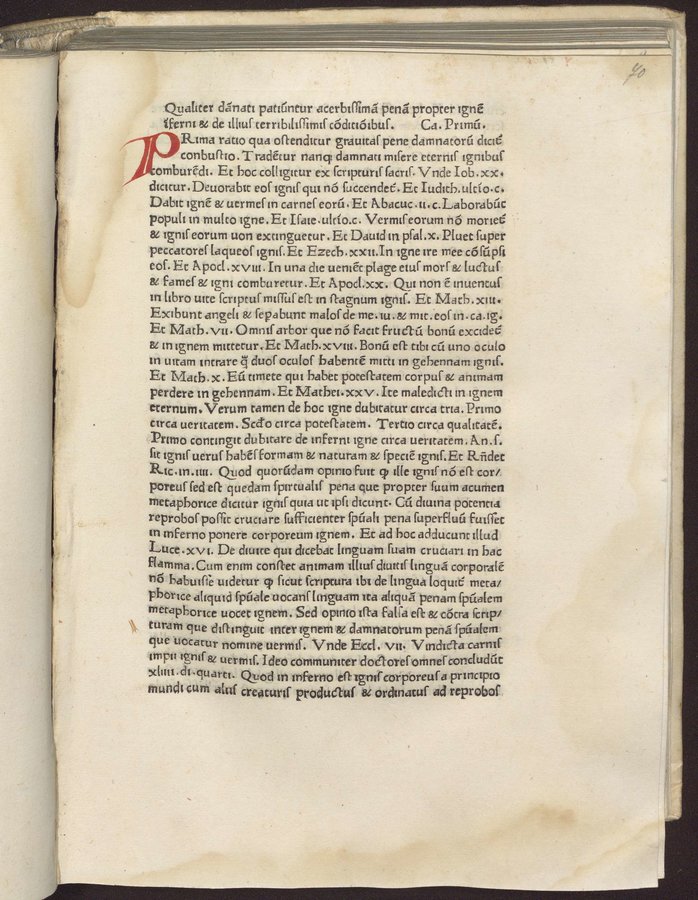 70
Qualiter dānati patiūntur acerbiſſimā penā propter ignē
īferni & de illius terribiliſſimis cōditiōibus. Ca. Primū.
PRima ratio qua oſtenditur gravitas pene damnatorū diciť
conbuſtio. Tradētur nanq; damnati miſere eternis ignibus
comburēdi. Et hoc colligitur ex ſcripturis ſacris. Vnde Iob .xx.
dicitur. Devorabit eos ignis qui nō ſuccendeť. Et Iudith. ultīo.c.
Dabit ignē & vermes in carnes eorū. Et Abacuc .ii.c. Laborabūt
populi in multo igne. Et Iſaie. ultīo.c. Vermis eorum nō morieť
& ignis eorum uon extinguetur. Et David in pſal.x. Pluet ſuper
peccatores laqueos ignis. Et Ezech.xxii. In igne ire mee cōſūpſi
eos. Et Apocl.xviii. In una die veniēt plage eius mors & luctus
& fames & igni comburetur. Et Apocl.xx. Qui non ē inventus
in libro vite ſcriptus miſſus eſt in ſtagnum ignis. Et Math.xiii.
Exibunt angeli & ſepabunt malos de me.iu. & mit.eos in.ca.ig.
Et Math.vii. Omnis arbor que nō facit fructū bonū excideť
& in ignem mittetur. Et Math.xviii. Bonū eſt tibi cū uno oculo
in vitam intrare q̄ duos oculos habentē mitti in gehennam ignis.
Et Math.x. Eū timete qui habet poteſtatem corpus & animam
perdere in gehennam. Et Mathei.xxv. Ite maledicti in ignem
eternum. Verum tamen de hoc igne dubitatur circa tria. Primo
circa veritatem. Secďo circa poteſtatem. Tertio circa qualitatē.
Primo contingit dubitare de inferni igne circa veritatem. An.ſ.
ſit ignis verus habēs formam & naturam & ſpeciē ignis. Et Rn̄det
Ric.in.iiii. Quod quorūdam opinio fuit ꝙ ille ignis nō eſt cor⸗
poreus ſed eſt quedam ſpirtualis pena que propter ſuum acumen
metaphorice dicitur ignis quia ut ipſi dicunt. Cū divina potentia
reprobos poſſit cruciare ſufficienter ſpūali pena ſuperfluū fuiſſet
in inferno ponere corporeum ignem. Et ad hoc adducunt illud
Luce.xvi. De divite qui dicebat linguam ſuam cruciari in hac
flamma. Cum enim conſtet animam illius divitis linguā corporalē
nō habuiſſe videtur ꝙ ſicut ſcriptura ibi de lingua loquiť meta⸗
phorice aliquid ſpūale vocans linguam ita aliquā penam ſpūalem
metaphorice vocet ignem. Sed opinio iſta falſa eſt & cōtra ſcrip⸗
turam que diſtinguit inter ignem & damnatorum penā ſpūalem
que vocatur nomine vermis. Vnde Eccl. vii. Vindicta carnis
impii ignis & vermis. Ideo communiter doctores omnes concludūt
xliiii.di.quarti. Quod in inferno eſt ignis corporeus a principio
mundi cum aliis creaturis productus & ordinatus ad reprobos